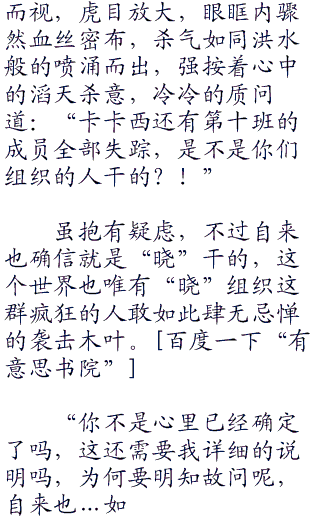 而视，虎目放大，眼眶内骤
然血丝密布，杀气如同洪水
般的喷涌而出，强按着心中
的滔天杀意，冷冷的质问
道：“卡卡西还有第十班的
成员全部失踪，是不是你们
组织的人干的？！”
虽抱有疑虑，不过自来
也确信就是“晓”干的，这
个世界也唯有“晓”组织这
群疯狂的人敢如此肆无忌惮
的袭击木叶。[百度一下“有
意思书院”]
“你不是心里已经确定
了吗，这还需要我详细的说
明吗，为何要明知故问呢，
自来也…如